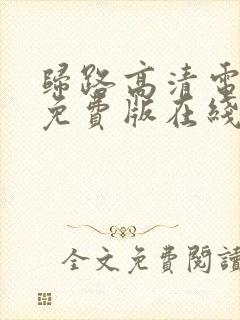 歸路高清電
免費版在綫
全文免費閱讀